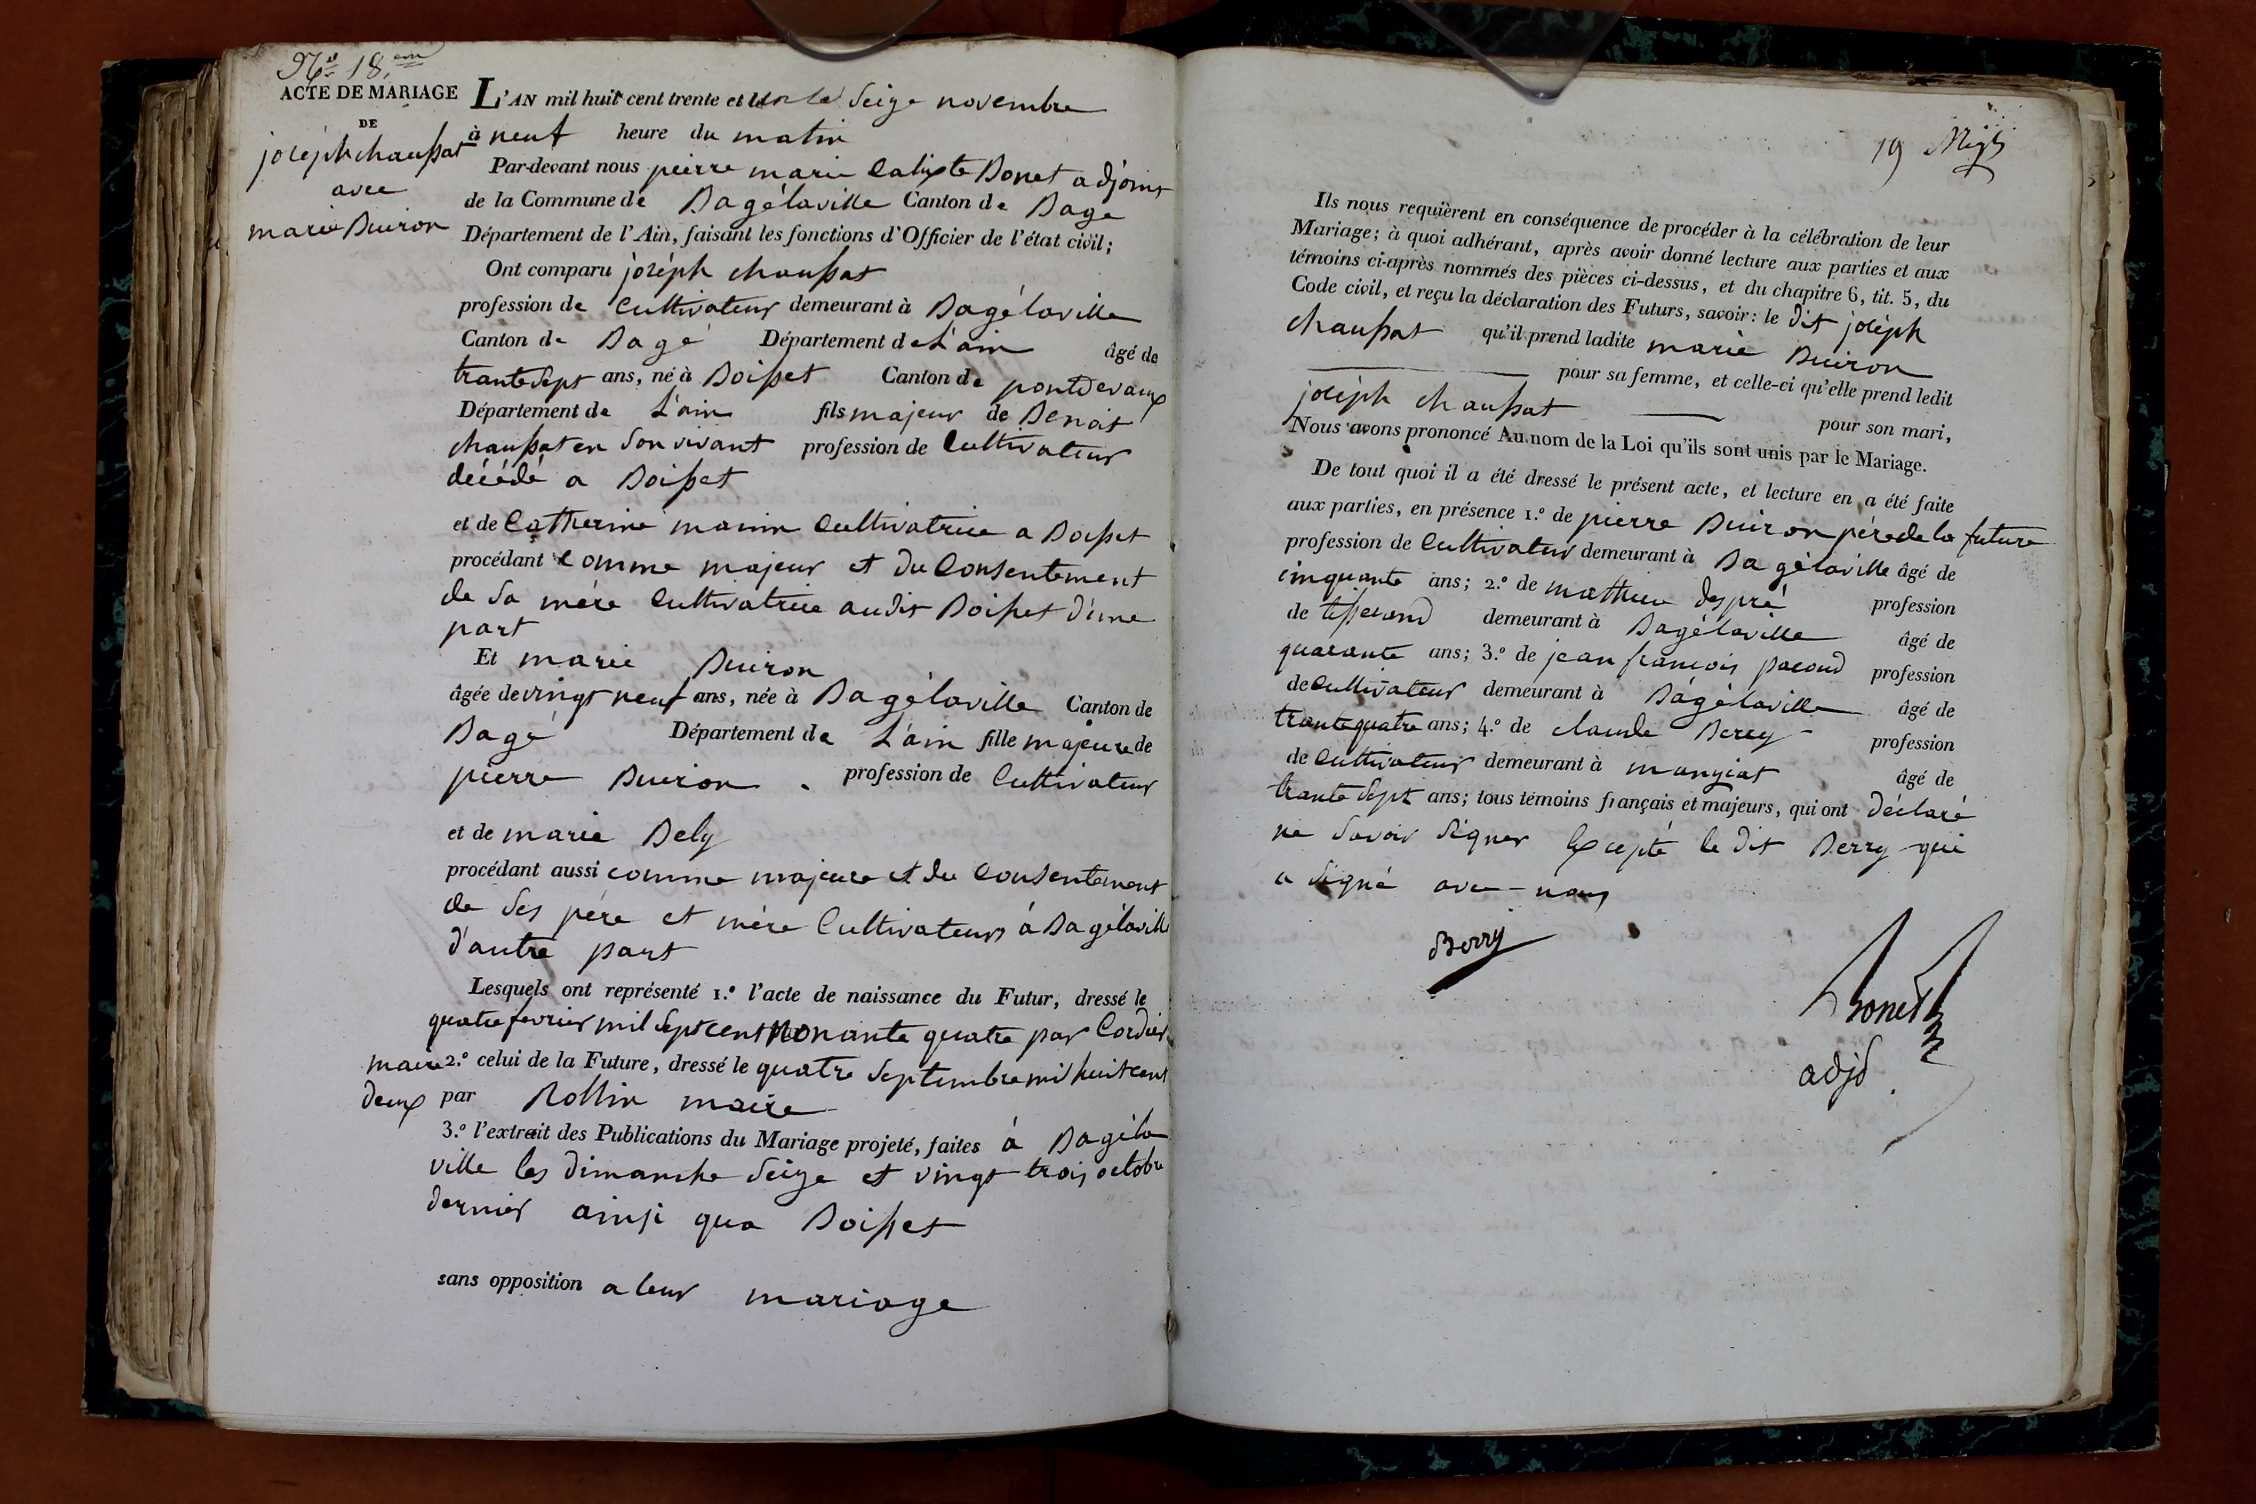 No 18.em
ACTE DE MARIAGE
DE
joséph chaussat
avec
marie Buiron
L'AN mil huit cent trente et un le seize novembre
à neuf heure du matin
Par-devant nous pierre marie Calixte Bonet adjoint
de la Commune de Bagélaville Canton de Bage
Département de l'Ain, faisant les fonctions d'Officier de l'état civil;
Ont comparu joséph chaussat
profession de Cultivateur demeurant à Bagélaville
Canton de Bagé Département de L'ain âgé de
trante sept ans, né à Boisset Canton de pontdevaux
Département de L'ain fils majeur de Benoit
chaussat en son vivant profession de Cultivateur
décédé a Boisset
et de Catherine manin Cultivatrice a Boisset
procédant comme majeur et du Consentement
de sa mère Cultivatrice audit Boisset d'une
part
Et marie Buiron
âgée de vingt neuf ans, née à Bagélaville Canton de
Bagé Département de L'ain fille majeure de
pierre Buiron . profession de Cultivateur
et de marie Bely
procédant aussi comme majeure et du Consentement
de ses père et mère Cultivateurs à Bagélaville
d'autre part
Lesquels ont représenté 1.º l'acte de naissance du Futur, dressé le
quatre fevrier mil sept cent nonante quatre par Cordier
maire 2.º celui de la Future, dressé le quatre Septembre mil huit cent
deux par Rollin maire
3.º l'extrait des Publications du Mariage projeté, faites à Bagéla
ville les dimanche seize et vingt trois octobre
dernier ainsi qua Boisset
sans opposition a leur mariage
19
Ils nous requièrent en conséquence de procéder à la célébration de leur
Mariage; à quoi adhérant, après avoir donné lecture aux parties et aux
témoins ci-après nommés des pièces ci-dessus, et du chapitre 6, tit. 5, du
Code civil, et reçu la déclaration des Futurs, savoir: le dit joséph
chaussat qu'il prend ladite marie Buiron
pour sa femme, et celle-ci qu'elle prend ledit
joséph chaussat pour son mari,
Nous avons prononcé Au nom de la Loi qu'ils sont unis par le Mariage.
De tout quoi il a été dressé le présent acte, et lecture en a été faite
aux parties, en présence 1.º de pierre Buiron père de la future
profession de Cultivateur demeurant à Bagélaville âgé de
cinquante ans; 2.º de mathieu després profession
de tisserand demeurant à Bagélaville âgé de
quarante ans; 3.º de jean françois pacoud profession
de Cultivateur demeurant à Bagélaville âgé de
trante quatre ans; 4.º de claude Berry profession
de Cultivateur demeurant à manziat âgé de
trante sept ans; tous témoins français et majeurs, qui ont déclaré
ne savoir signer Excepté le dit Berry qui
a signé avec nous
Berry
Bonet
adjt